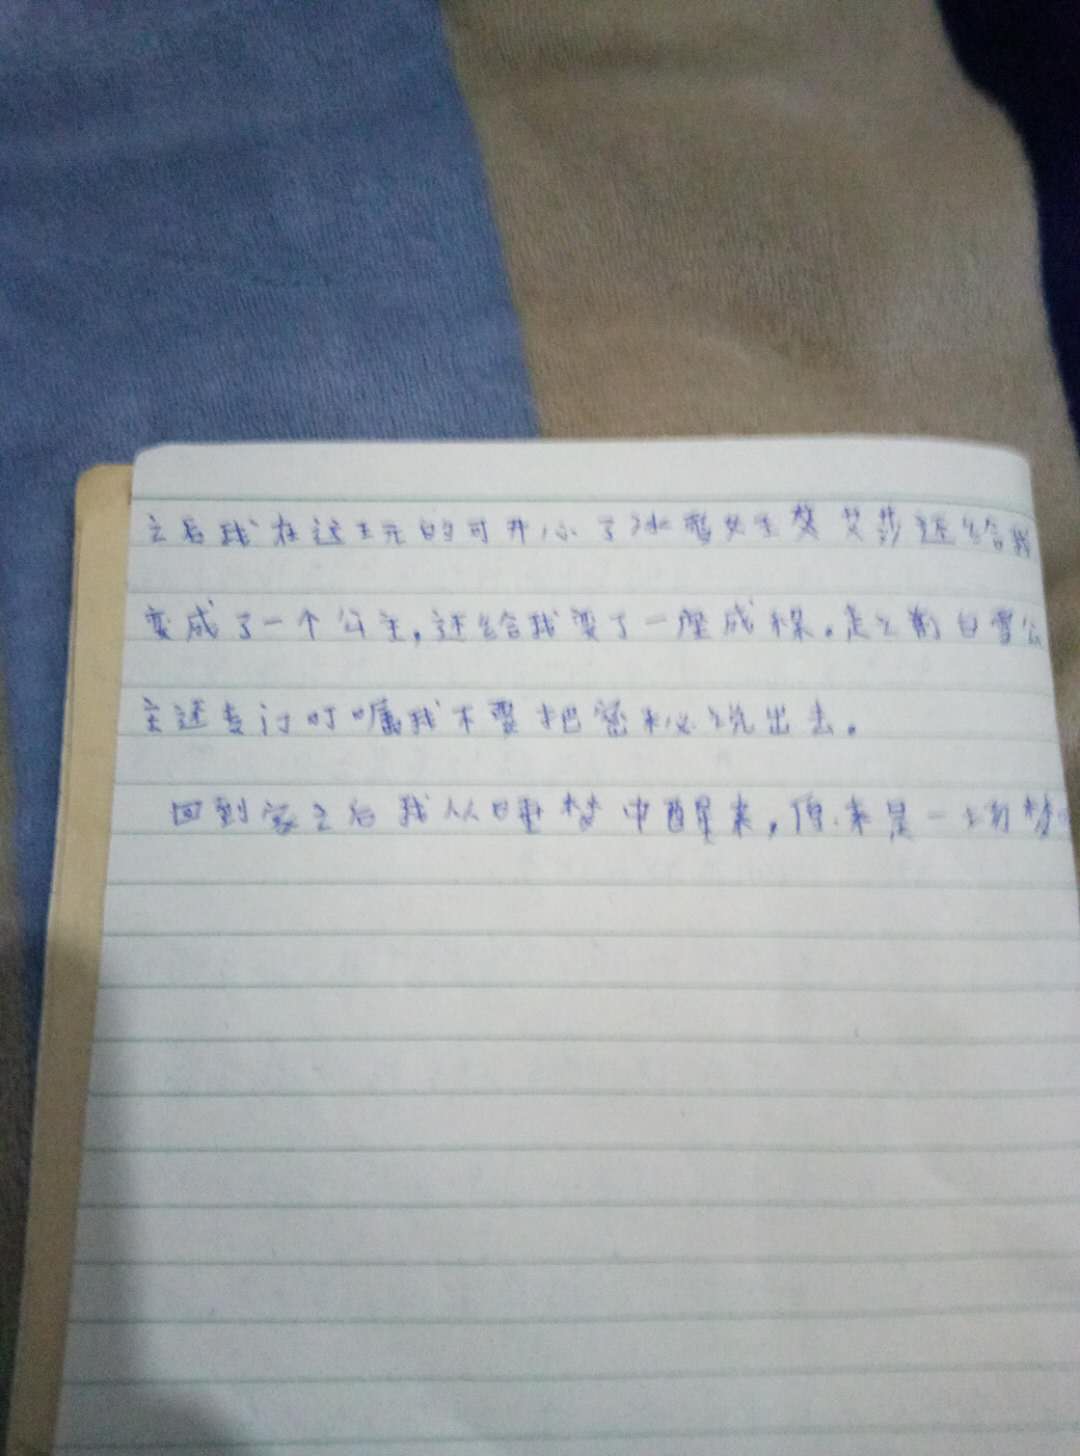 之后我在这玩的可开心了冰雪女王 艾莎还给我
变成了一个公主,还给我变了一座成保。走之前白雪公
主还专门叮嘱我不要把密秘说出去。
回到家之后我从睡梦中醒来,原来是一场梦